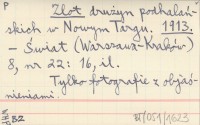 P
Zlot drużyn podhalań-
skich w Nowym Targu. 1913.
– Świat (Warszawa-Kraków)
8, nr 22: 16, il.
Tylko fotografie z objaś-
nieniami
B2